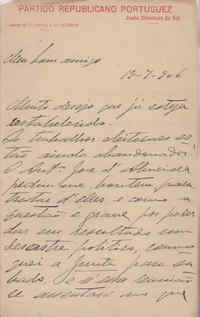 PARTIDO REPUBLICANO PORTUGUEZ
Junta Directora do Sul
Meu bom amigo
12-7-906
Muito desejo que já esteja
restabelecido.
Os trabalhos eleitoraes es-
tão ainda abandonados!
O José d'Almeida
pediu-me hontem para
tractar d'elles e como a
questão é grave por poder
dar em resultado um
desastre politico, convo-
quei a Junta para sab-
bado. Se d'essa reunião
se assentar em que